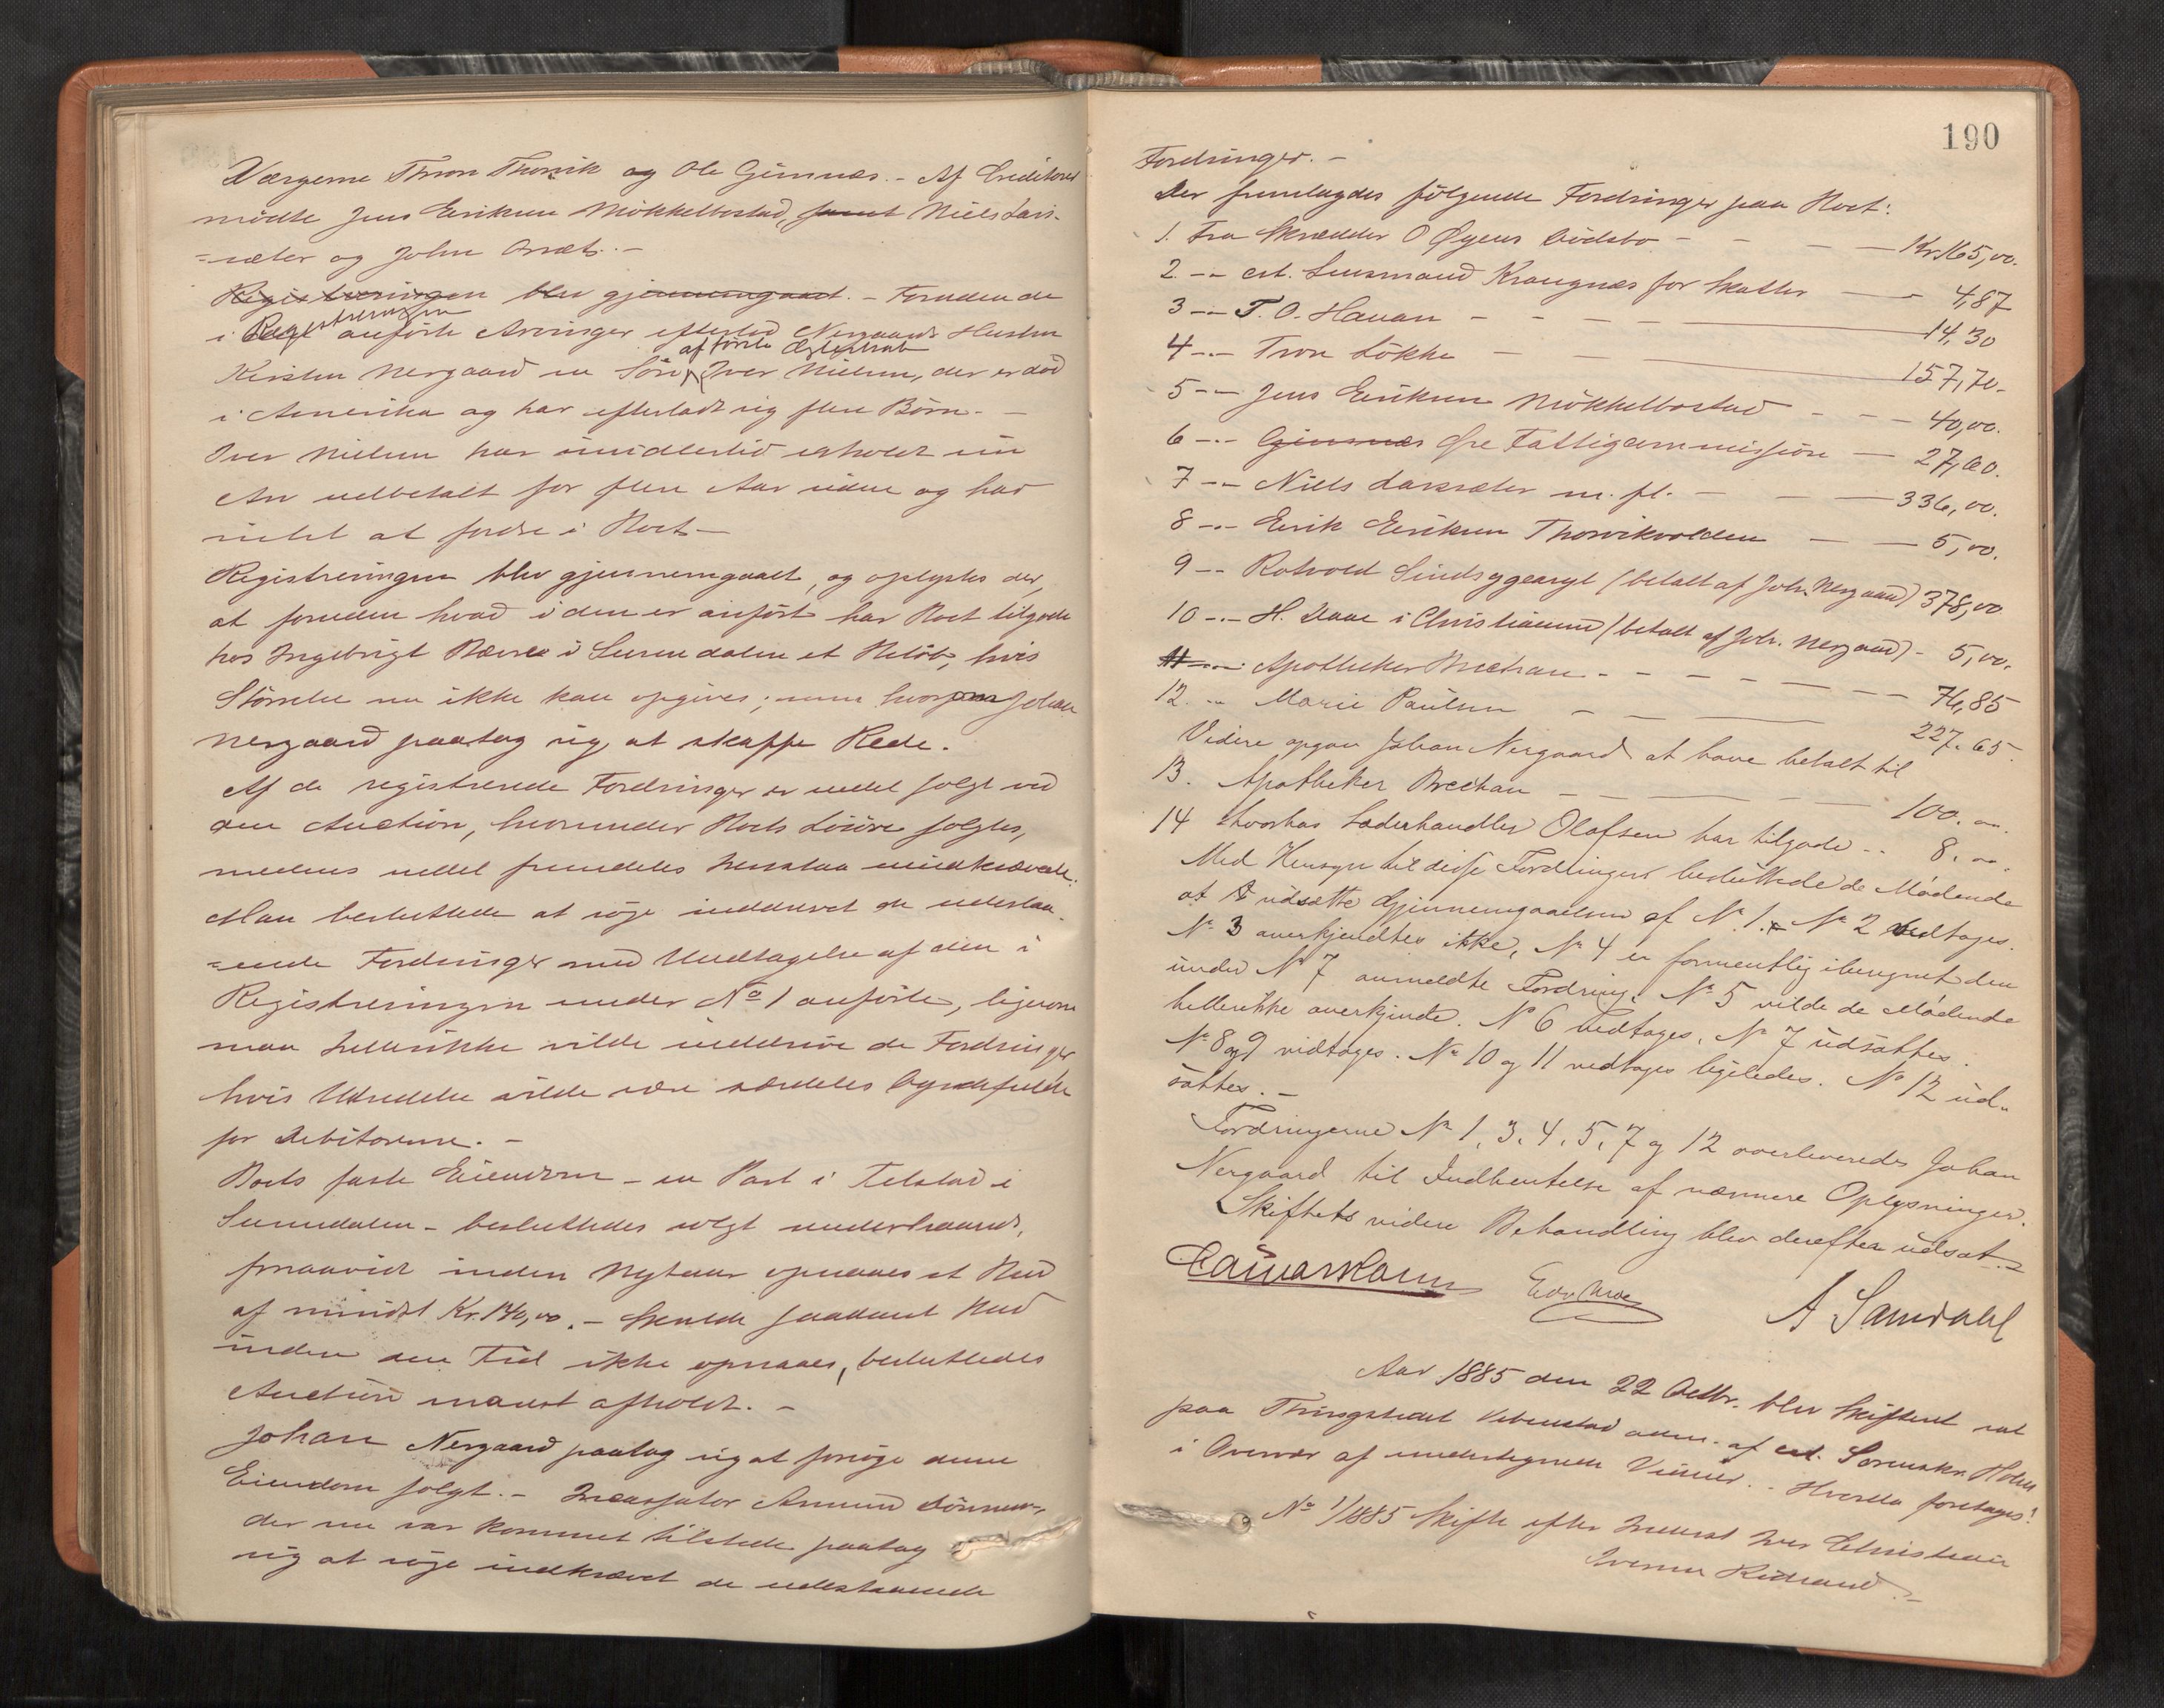 Værgerne Thron Thorvik og Ole Gimnæs. - Af Creditorer
mødte Jens Eriksen Mökkelbostad, samt Niels Lars-
=sæter og John Aasæt. -
Registreringen blev gjennemgaaet. - Foruden de
i Registreringen anförte Arvinger efterlod Nergaards Hustru
Kirsten Nergaard en Sön af förste Ægteskab Iver Nielsen, der er död
i Amerika og har efterladt sig flere Börn. -
Iver Nielsen har imidlertid erholdt sin
Arv udbetalt for flere Aar siden og har
intet at fordre i Boet. -
Registreringen blev gjennemgaaet, og oplystes der,
at foruden hvad i den er anfört har Boet tilgode
hos Ingebrigt Bævre i Surendalen et Belöb, hvis
Störrelse nu ikke kan opgives; men hvorom Johan
Nergaard paatog sig at skaffe Rede.
Af de registrerede Fordringer er endel solgt ved
den Auction, hvorunder Boets Lösöre solgtes,
medens endel fremdeles henstaa uindkrævede.
Man besluttede at söge inddrevet de udestaa-
=ende Fordringer med Undtagelse af den i
Registreringen under No 1 anförte, ligesom
man hellerikke vilde inddrive de Fordringer
hvis Udredelse vilde være særdeles byrdefulde
for Debitorerne. -
Boets faste Eiendom - en Part i Telstad i
Surendalen - besluttedes solgt underhaanden,
forsaavidt inden Nytaar opnaaes et Bud
af mindst Kr. 140,00. - Skulde saadant Bud
inden den Tid ikke opnaaes, besluttedes
Auction andet afholdt. -
Johan Nergaard paatog sig at forsöge denne
Eiendom solgt. - Incassator Amund Sönnes,
der nu var kommet tilstede paatog
sig at söge indkrævet de udestaaende
190
Fordringer. -
Der fremlagdes fölgende Fordringer paa Boet:
1. Fra Skrædder O Øyens Dödsbo - - - - Kr. 165,00.
2 -"- cst. Lensmand Krangnæs for Skatter - - 4,87
3 -"- T. O. Hauan - - - - 14,30
4 -"- Tron Lökke - - 157,70.
5 -"- Jens Eriksen Mökkelbostad - - - 40,00.
6 -"- Gimnæs Øre Fattigcommission - 27,60.
7 -"- Niels Larssæter m. fl. - - - 336,00.
8 -"- Eirik Eriksen Thorvikvolden - - 5,00.
9 -"- Rotvold Sindsygeasyl (betalt af Joh. Nergaard) 378,00
10 -"- H. Daae i Christiansund (betalt af Joh. Nergaard) - 5,00.
11 -"- Apotheker Brechan - - - - - - - 76,85
12. -"- Marie Paulsen - - - 227.65.
Videre opgav Johan Nergaard at have betalt til
13. Apotheker Brechan - - - - 100. "".
14 hvorhos Læderhandler Olafsen har tilgode - - 8. "".
Med Hensyn til disse Fordringer besluttede de Mødende
at udsætte Gjennemgaaelsen af No 1. No 2 vedtages.
No 3 anerkjendtes ikke, No 4 er formentlig iberegnet den
under No 7 anmeldte Fordring. No 5 vilde de Mødende
hellerikke anerkjende. No 6 vedtages, No 7 udsættes.
No 8 og 9 vedtages. No 10 og 11 vedtages ligeledes. No 12 ud-
sættes. -
Fordringerne No 1, 3, 4, 5, 7 og 12 overleveredes Johan
Nergaard til Indhentelse af nærmere Oplysninger.
Skiftets videre Behandling blev derefter udsat. -
A Samdahl
Aar 1885 den 22 Octbr. blev Skifteret sat
paa Thingstedet Vebenstad adm. af cst. Sorenskr. Holm
i Overvær af undertegnede Vidner. - Hvorda foretoges:
No 1/1885 Skifte efter Inderst Iver Christian
Iversen Rødsand. -